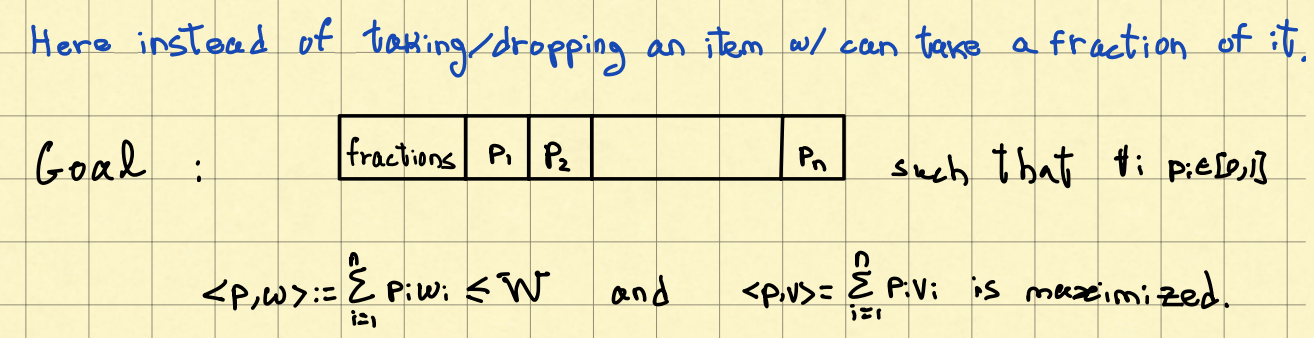 Here instead of taking/dropping an item w/ can take a fraction of it.
Goal : fractions p₁ p₂ pₙ such that ∀i pᵢ∈[0,1]
<p,w>:= ∑ᵢ₌₁ⁿ pᵢwᵢ ≤ W and <p,v>= ∑ᵢ₌₁ⁿ pᵢvᵢ is maximized.